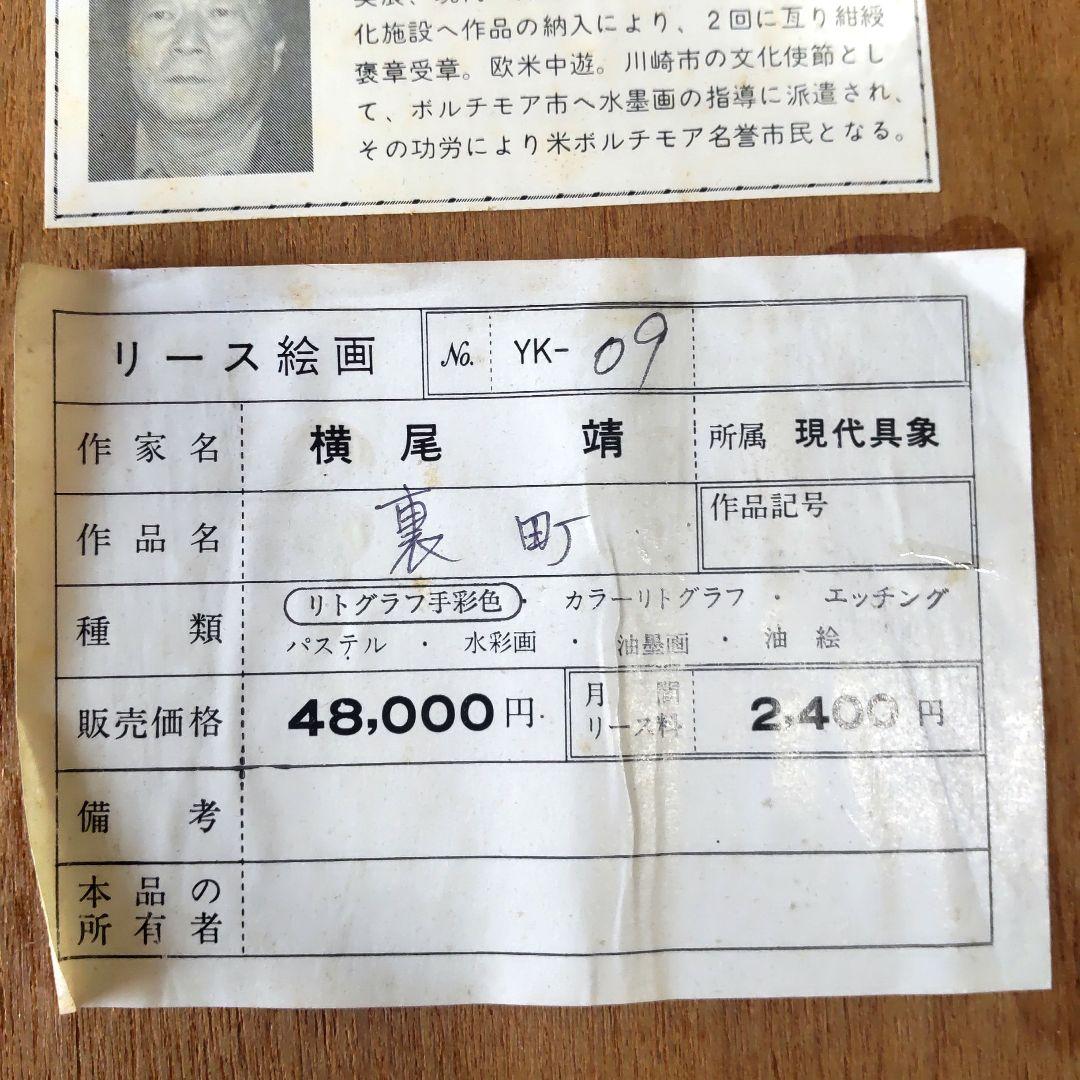 化施設へ作品の納入により、2回に亙り紺綬
褒章受章。欧米中遊。川崎市の文化使節とし
て、ボルチモア市へ水墨画の指導に派遣され、
その功労により米ボルチモア名誉市民となる。
リース絵画 No. YK- 09
作家名 横尾 靖 所属 現代具象
作品名 裏町 作品記号
種類 リトグラフ手彩色・ カラーリトグラフ ・ エッチング
パステル ・ 水彩画 ・ 油墨画 ・ 油絵
販売価格 48,000円 月間リース料 2,400円
備考
本品の
所有者